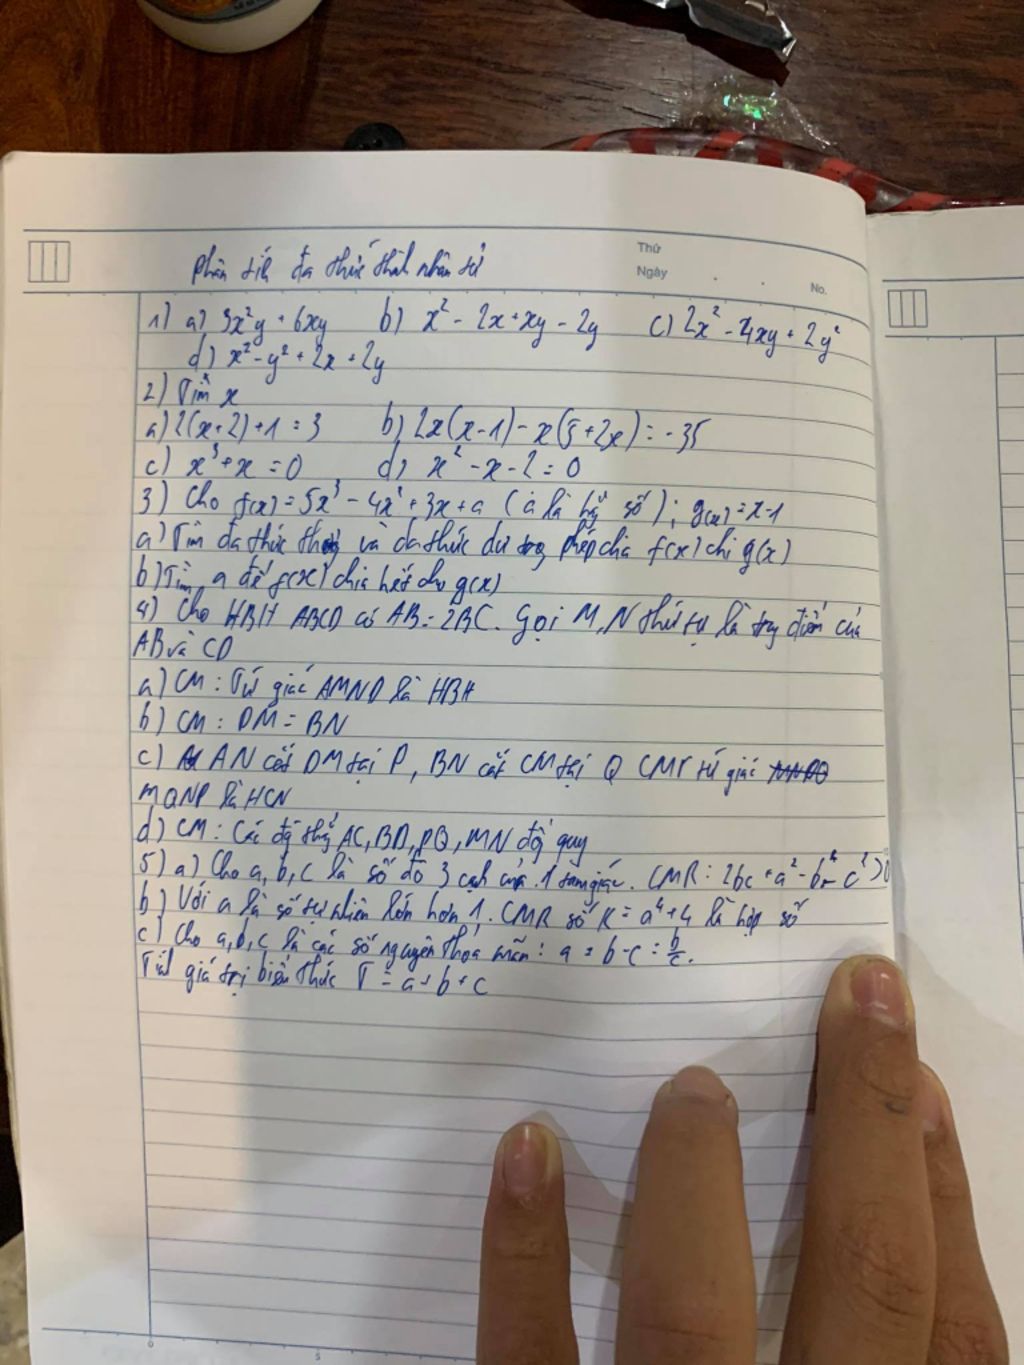 Thứ
Phân tích đa thức thành nhân tử
Ngày
No.
1) a) 3x²y + 6xy b) x² - 2x + xy - 2y c) 2x² - 4xy + 2y²
d) x² - y² + 2x + 2y
2) Tìm x
a) 2(x+2)+1 = 3 b) 2x(x-1) - x(5+2x) = -35
c) x³ + x = 0 d) x² - x - 2 = 0
3) Cho f(x) = 5x³ - 4x² + 3x + a (a là hằng số); g(x) = x-1
a) Tìm đa thức thương và đa thức dư trong phép chia f(x) cho g(x)
b) Tìm a để f(x) chia hết cho g(x)
4) Cho HBH ABCD có AB = 2BC. Gọi M, N thứ tự là trung điểm của
AB và CD
a) CM: Tứ giác AMND là HBH
b) CM: DM = BN
c) AN cắt DM tại P, BN cắt CM tại Q CMr tứ giác
MQNP là HCN
d) CM: Các đg thẳng AC, BD, PQ, MN đồng quy
5) a) Cho a, b, c là số đo 3 cạnh của 1 tam giác. CMR: 2bc + a² - b² - c² > 0
b) Với a là số tự nhiên lớn hơn 1. CMR số K = a⁴ + 4 là hợp số
c) Cho a, b, c là các số nguyên thỏa mãn: a = b - c = b/c.
Tính giá trị biểu thức T = a + b + c
0
5